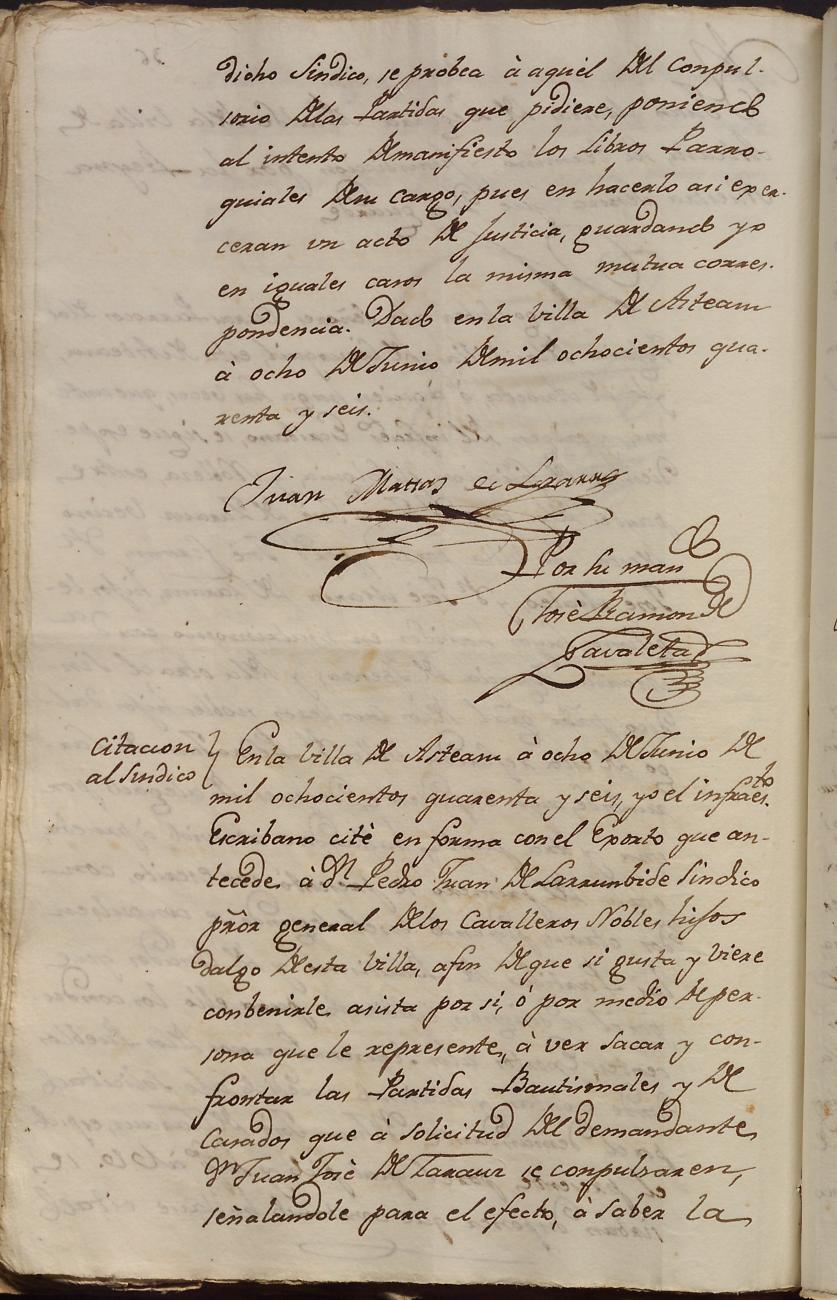 dicho Sindico, se probea à aquel del conpul-
sorio de las Partidas que pidiere, poniendo
al intento de manifiesto los Libros Parro-
quiales de su cargo, pues en hacerlo asi exer-
ceran un acto de Justicia, guardando yo
en iguales casos la misma mutua corres-
pondencia. Dado en la Villa de Asteasu
à ocho de Junio de mil ochocientos qua-
renta y seis.
Juan Matias de
Por su man.do
José Ramon de
Zavaleta
citacion
al Sindico
En la Villa de Asteasu à ocho de Junio de
mil ochocientos quarenta y seis, yo el infraes.to
Escribano cité en forma con el Exorto que an-
tecede à Dn. Pedro Juan de Larrunbide Sindico
prõr general de los Cavalleros Nobles hijos
dalgo de esta Villa, afin de que si gusta y viere
conbenirle asista por si, ó por medio de per-
sona que le represente, à ver sacar y con-
frontar las Partidas Bautismales y de
Casados que à solicitud del demandante
Dn. Juan José de se conpulsaren,
señalandole para el efecto, à saber la